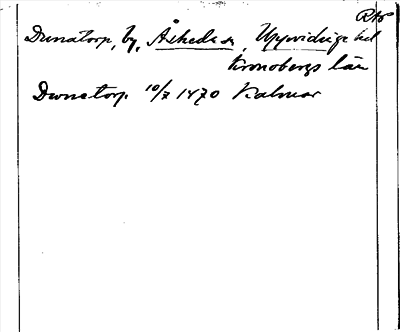 RAp
Dunatorp, by, Åsheda sn, Uppvidinge hd
Kronobergs län
Dwnetorp 10/7 1470 Kalmar